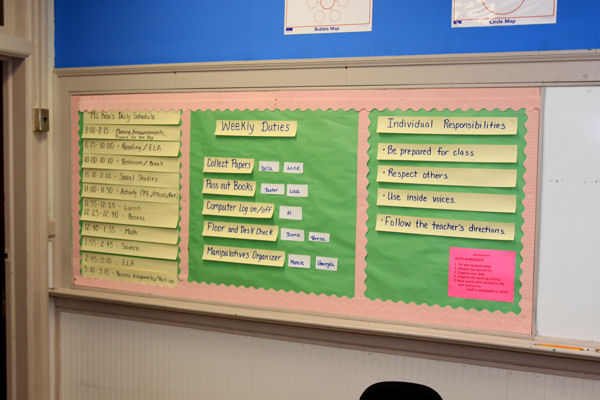 Bubble Map
Circle Map
Daily Schedule
8:00-8:15 Morning Announcements,
Prepare for the Day
8:15-10:00 - Reading / ELA
10:00-10:10 - Restroom / Break
10:10-11:00 - Social Studies
11:00-11:50 - Activity (PE/Music/Art)
11:55-12:25 - Lunch
12:25-12:40 - Recess
12:40-1:55 - Math
1:55-2:45 - Science
2:45-3:10 - ELA
3:10-3:15 - Review Assignments/Pack up
Weekly Duties
Collect Papers
Carla
Anne
Pass out Books
Lisa
Computer Log on/off
Al
Floor and Desk Check
Dianne
Teresa
Manipulatives Organizer
Marcie
Georgia
Individual Responsibilities
• Be prepared for class.
• Respect others.
• Use inside voices.
• Follow the teacher's directions.